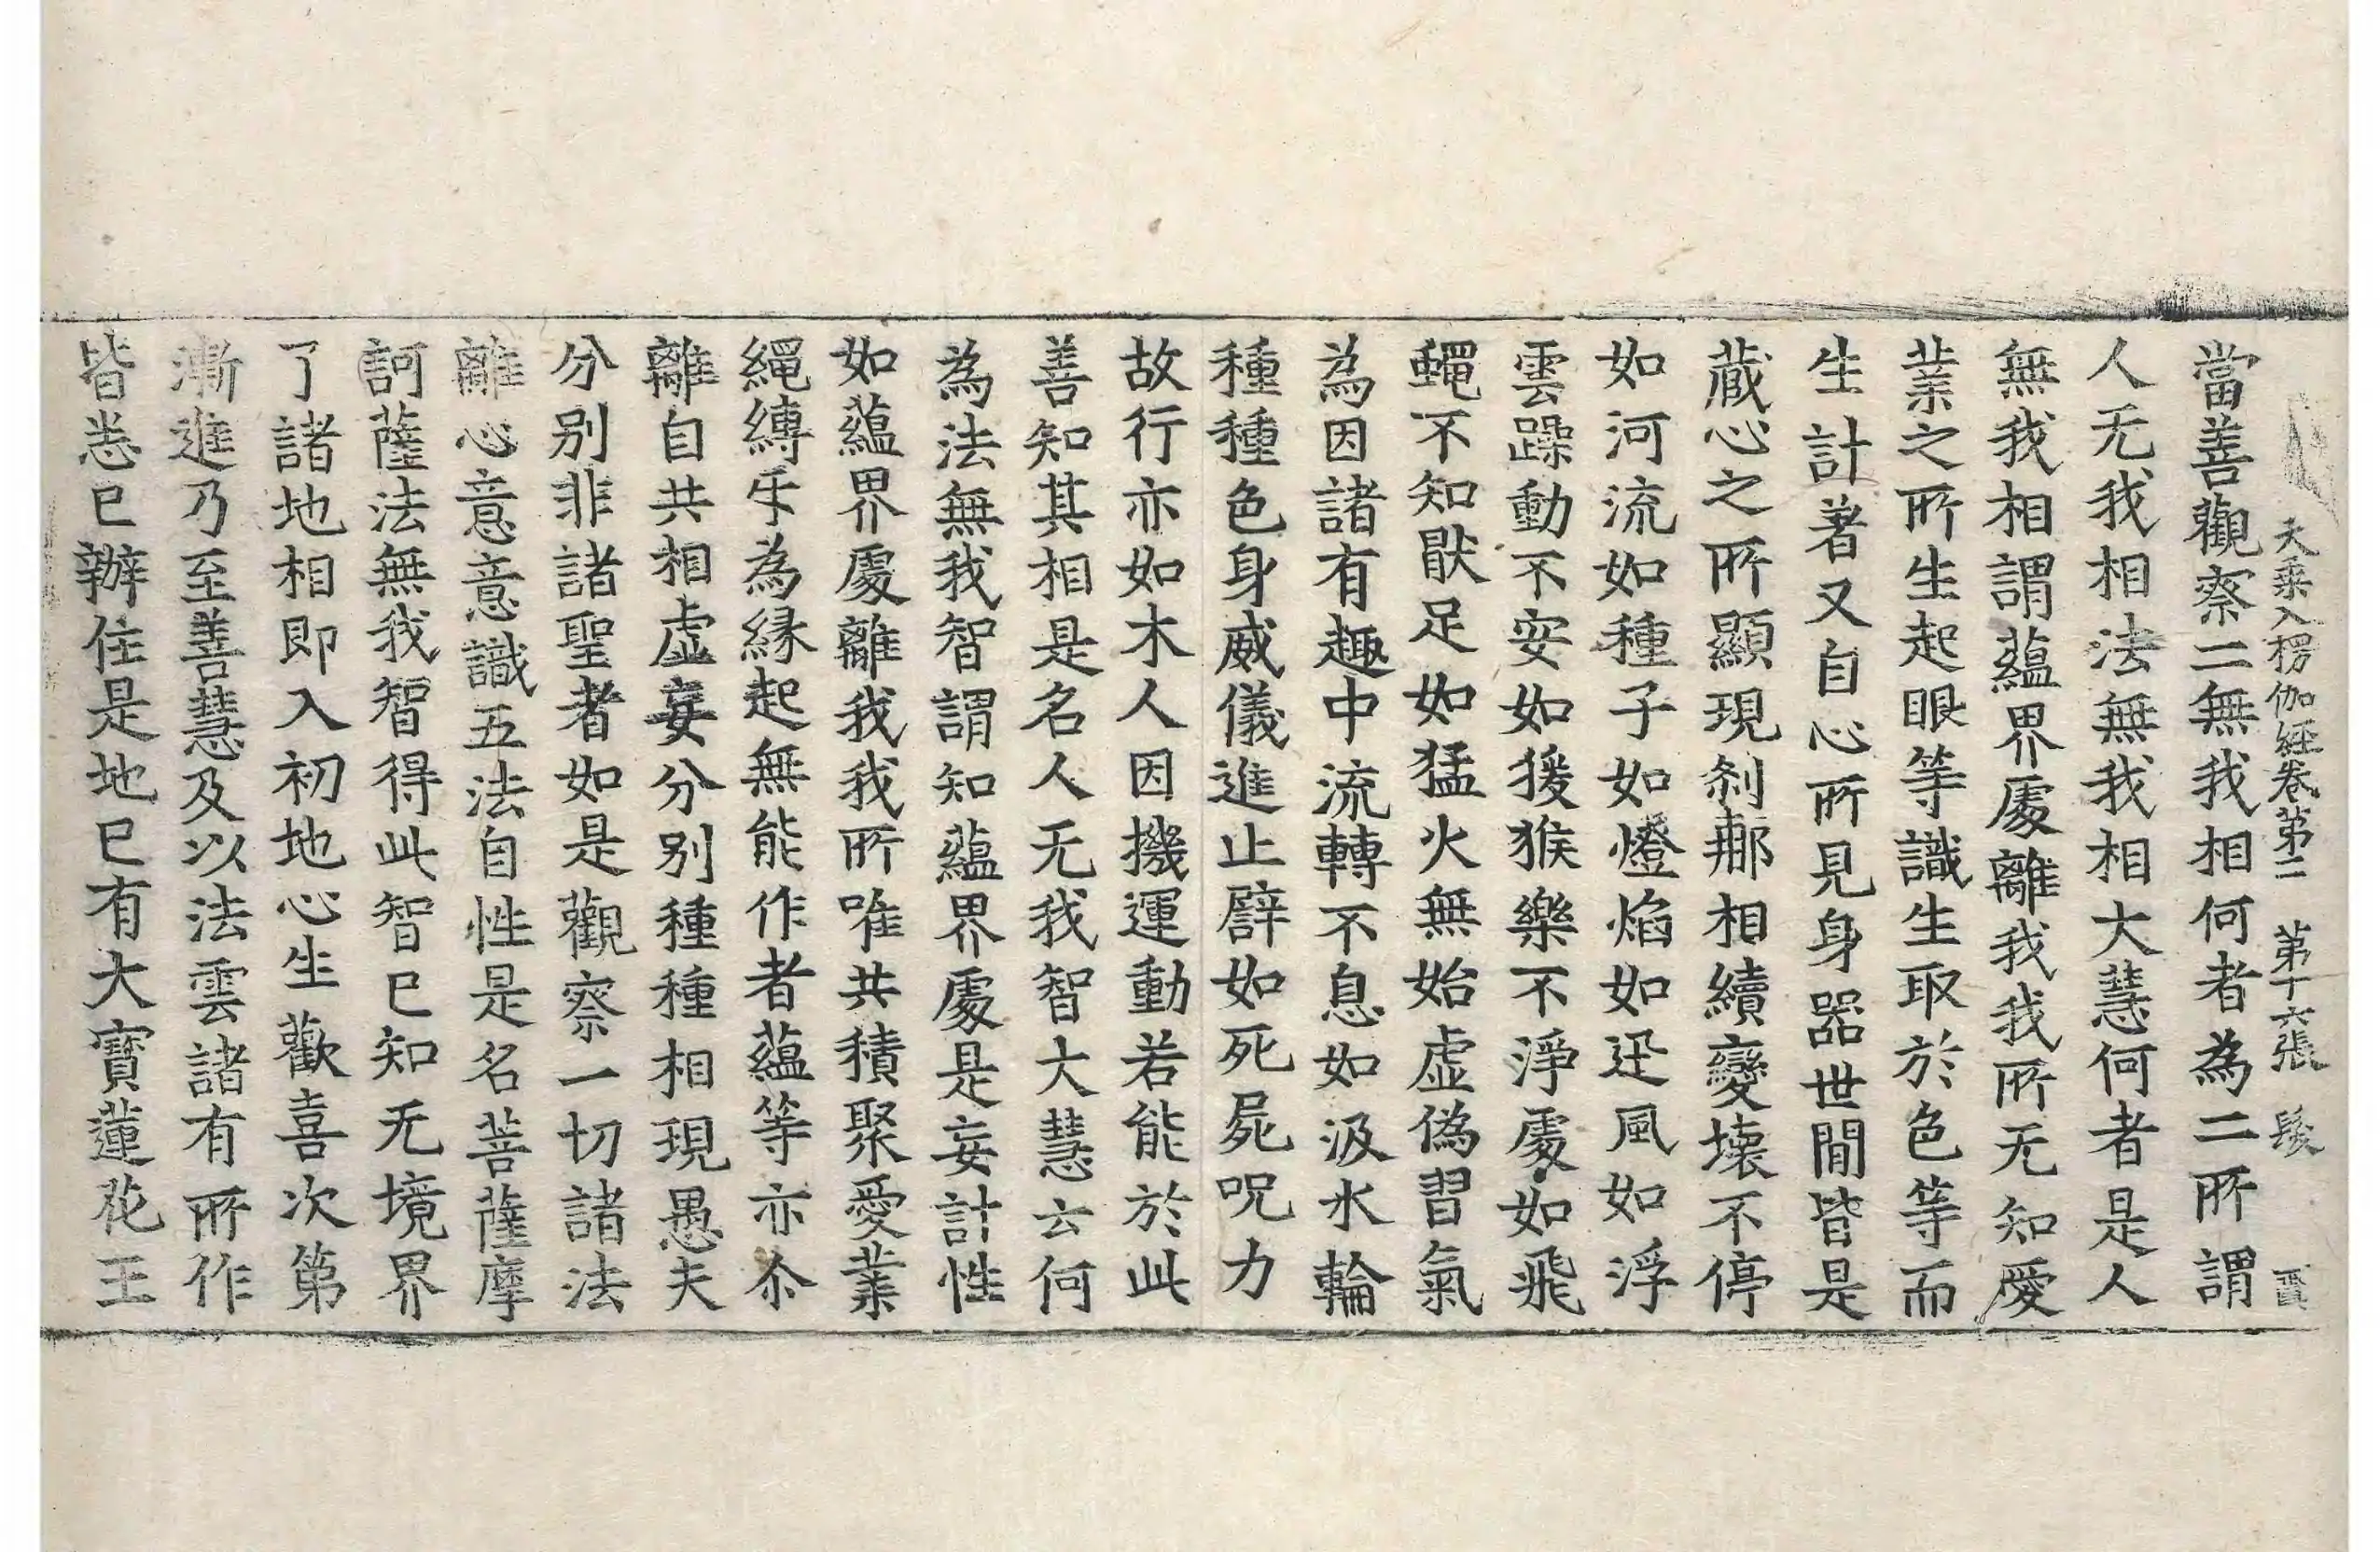 大乗入楞伽経卷第二 第十六張 髮
當善觀察二無我相何者為二所謂
人无我相法無我相大慧何者是人
無我相謂蘊界處離我我所无知愛
業之所生起眼等識生取於色等而
生計著又自心所見身器世間皆是
蔵心之所顯現剎那相續變壞不停
如河流如種子如燈焰如迅風如浮
雲躁動不安如猨猴樂不淨處如飛
蠅不知猒足如猛火無始虛偽習氣
為因諸有趣中流轉不息如汲水輪
種種色身威儀進止譬如死屍呪力
故行亦如木人因機運動若能於此
善知其相是名人无我智大慧云何
為法無我智謂知蘊界處是妄計性
如蘊界處離我我所唯共積聚愛業
繩縛㸦為縁起無能作者蘊等亦尒
離自共相虛妄分別種種相現愚夫
分別非諸聖者如是觀察一切諸法
離心意意識五法自性是名菩薩摩
訶薩法無我智得此智已知无境界
了諸地相即入初地心生歡喜次第
漸進乃至善慧及以法雲諸有所作
皆悉已辦住是地已有大寶蓮花王